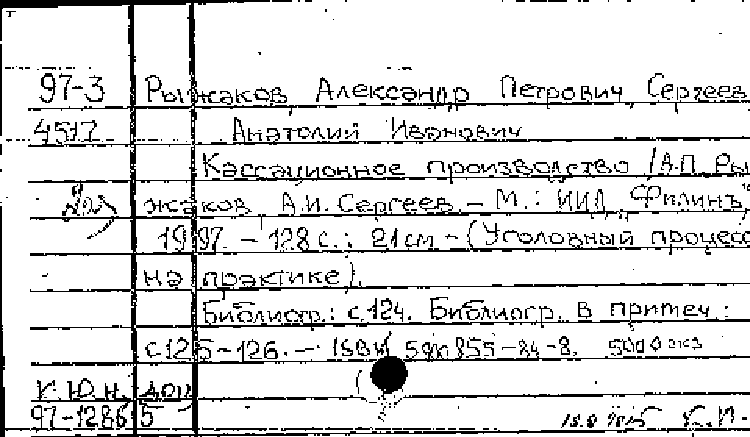 97-3 Рыжаков, Александр Петрович, Сергеев
4517 Анатолий Иванович
Кассационное производство /А.П. Ры-
жаков, А.И. Сергеев. – М.: ИИД "Филинъ",
1997. – 128 с.; 21 см – (Уголовный процесс
на практике).
Библиогр.: с.124. Библиогр. в примеч.:
с.125–126. – ISBN 5 895–84–8. 5000 экз
К.Ю.Н. доц
97-12865